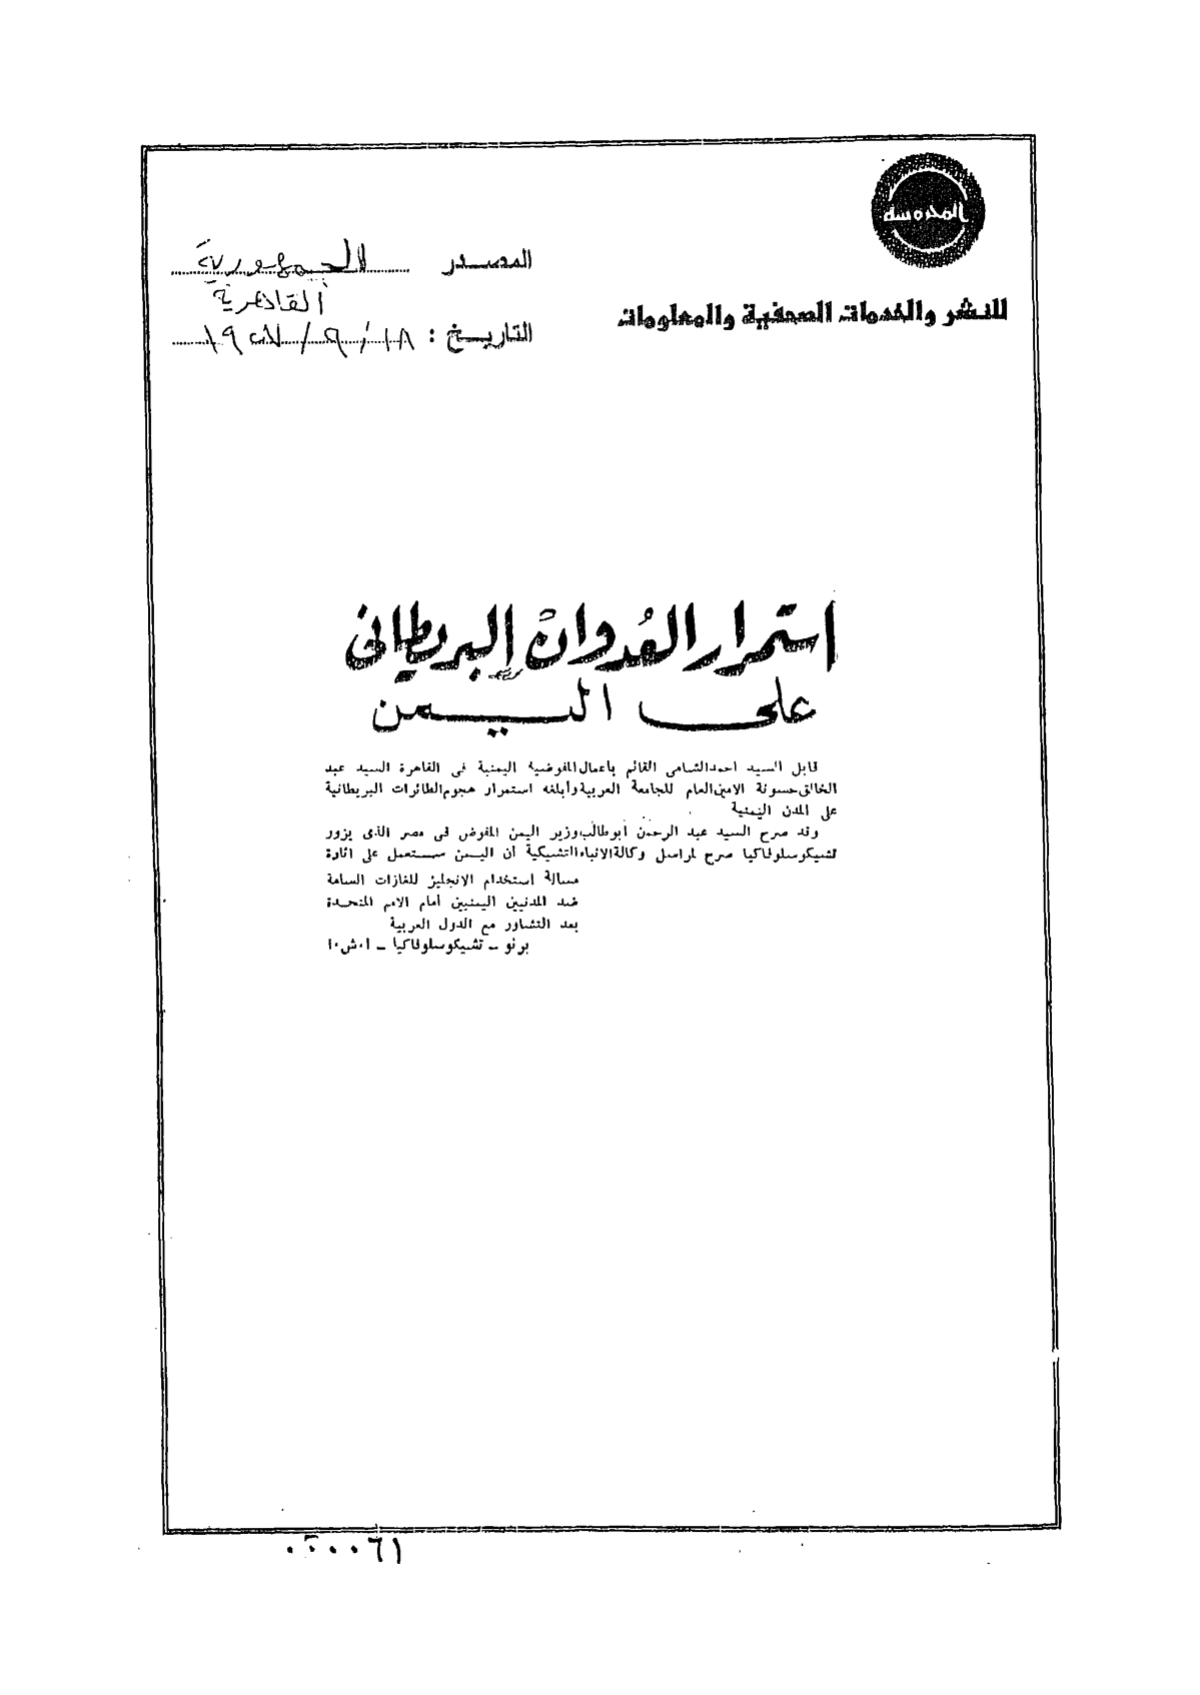 المحروسة
للنشر والخدمات الصحفية والمعلومات
المصدر الجمهورية
القاهرية
التاريخ : ١٨ / ٩ /
استمرار العُدوان البريطانى
على اليمن
قابل السيد احمد الشامى القائم باعمال المفوضية اليمنية فى القاهرة السيد عبد
الخالق حسونة الامين العام للجامعة العربية وأبلغه استمرار هجوم الطائرات البريطانية
على المدن اليمنية
وقد صرح السيد عبد الرحمن أبو طالب وزير اليمن المفوض فى مصر الذى يزور
تشيكوسلوفاكيا صرح لمراسل وكالة الانباء التشيكية أن اليمن ستعمل على اثارة
مسألة استخدام الانجليز للغازات السامة
ضد المدنيين اليمنيين أمام الامم المتحدة
بعد التشاور مع الدول العربية
برنو - تشيكوسلوفاكيا - ا.ش.ا